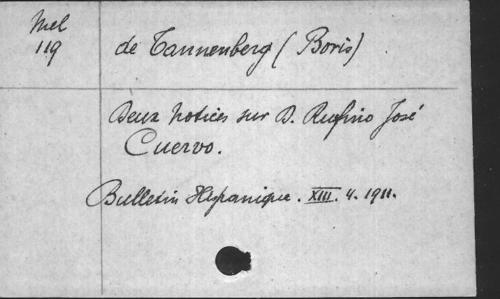 Mel
119
de Tannenberg (Boris)
Deux notices sur D. Rufino José
Cuervo.
Bulletin Hispanique. XIII. 4. 1911.